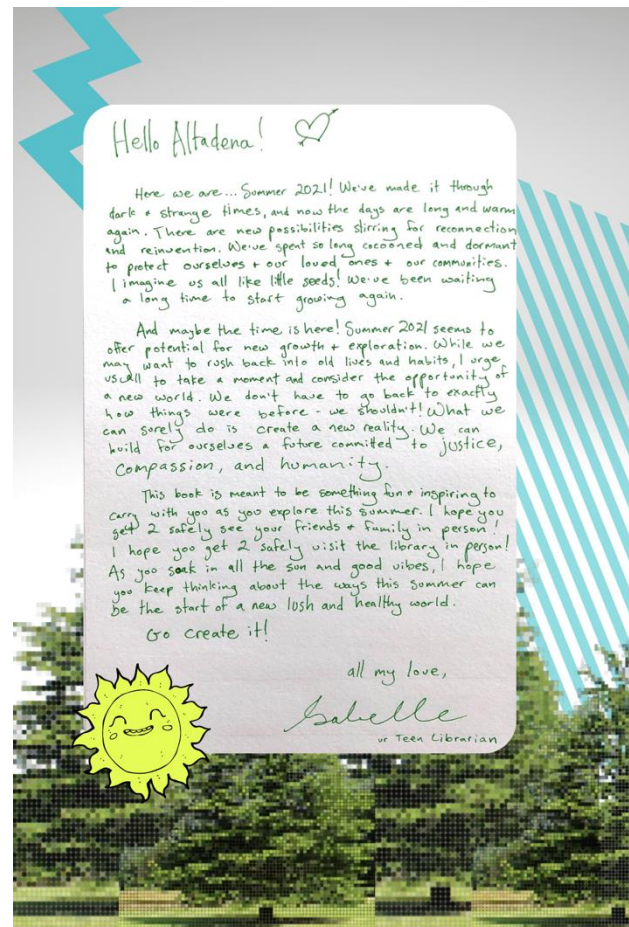 Hello Altadena!
Here we are... Summer 2021! We've made it through
dark + strange times, and now the days are long and warm
again. There are new possibilities stirring for reconnection
and reinvention. We've spent so long cocooned and dormant
to protect ourselves + our loved ones + our communities.
I imagine us all like little seeds! We've been waiting
a long time to start growing again.
And maybe the time is here! Summer 2021 seems to
offer potential for new growth + exploration. While we
may want to rush back into old lives and habits, I urge
us all to take a moment and consider the opportunity of
a new world. We don't have to go back to exactly
how things were before - we shouldn't! What we
can surely do is create a new reality. We can
build for ourselves a future committed to justice,
compassion, and humanity.
This book is meant to be something fun + inspiring to
carry with you as you explore this summer. I hope you
get 2 safely see your friends + family in person!
I hope you get 2 safely visit the library in person!
As you soak in all the sun and good vibes, I hope
you keep thinking about the ways this summer can
be the start of a new lush and healthy world.
Go create it!
all my love,
Isabelle
ur Teen Librarian